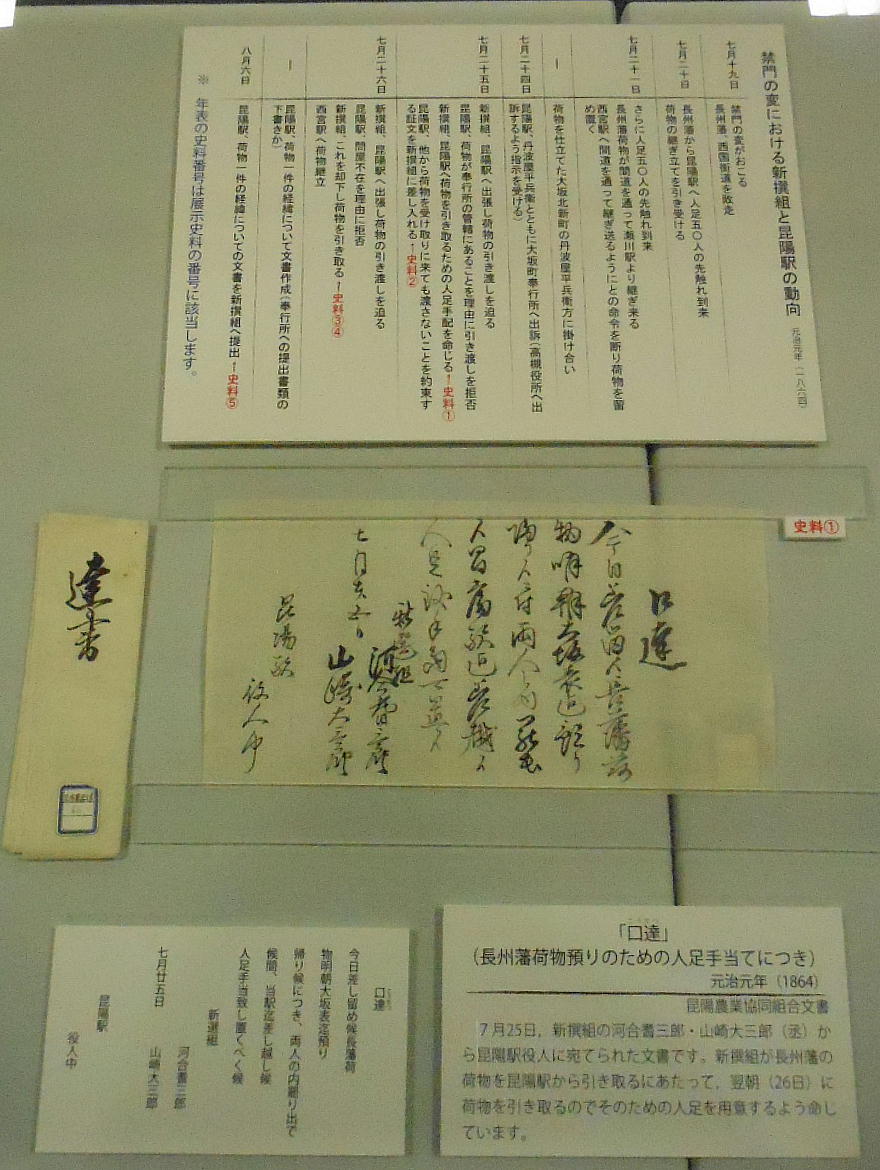 禁門の変における新撰組と昆陽駅の動向
元治元年(一八六四)
七月十九日
禁門の変がおこる
長州藩、西国街道を敗走
七月二十日
長州藩から昆陽駅へ人足五〇人の先触れ到来
荷物の継ぎ立てを引き受ける
七月二十一日
さらに人足五〇人の先触れ到来
長州藩荷物が間道を通って瀬川駅より継ぎ来る
西宮駅へ間道を通って継ぎ送るようにとの命令を断り荷物を留
め置く
｜
荷物を仕立てた大坂北新町の丹波屋平兵衛方に掛け合い
七月二十四日
昆陽駅、丹波屋平兵衛とともに大坂町奉行所へ出訴(高槻役所へ出
訴するよう指示を受ける)
七月二十五日
新撰組、昆陽駅へ出張し荷物の引き渡しを迫る
昆陽駅、荷物が奉行所の管轄にあることを理由に引き渡しを拒否
新撰組、昆陽駅へ荷物を引き取るための人足手配を命じる→史料①
昆陽駅、他から荷物を受け取りに来ても渡さないことを約束す
る証文を新撰組に差し入れる→史料②
七月二十六日
新撰組、昆陽駅へ出張し荷物の引き渡しを迫る
昆陽駅、問屋不在を理由に拒否
新撰組、これを却下し荷物を引き取る→史料③④
西宮駅へ荷物継立
｜
昆陽駅、荷物一件の経緯について文書作成(奉行所への提出書類の
下書きか)
八月六日
昆陽駅、荷物一件の経緯についての文書を新撰組へ提出→史料⑤
※ 年表の史料番号は展示史料の番号に該当します。
史料①
口達
今日差留候長藩荷
物明朝大坂表迄預り
帰り候付両人之内罷出
候間当駅迄差越候
人足手当致可置候
新選組
七月廿五日
河合耆三郎
山崎大三郎
昆陽駅
役人中
達書
口達
今日差し留め候長藩荷
物明朝大坂表迄預り
帰り候につき、両人の内罷り出で
候間、当駅迄差し越し候
人足手当致し置くべく候
新選組
七月廿五日
河合耆三郎
山崎大三郎
昆陽駅
役人中
「口達」
(長州藩荷物預りのための人足手当てにつき)
元治元年(1864)
昆陽農業協同組合文書
７月25日，新撰組の河合耆三郎・山崎大三郎（丞）か
ら昆陽駅役人に宛てられた文書です。新撰組が長州藩の
荷物を昆陽駅から引き取るにあたって，翌朝（26日）に
荷物を引き取るのでそのための人足を用意するよう命じ
ています。